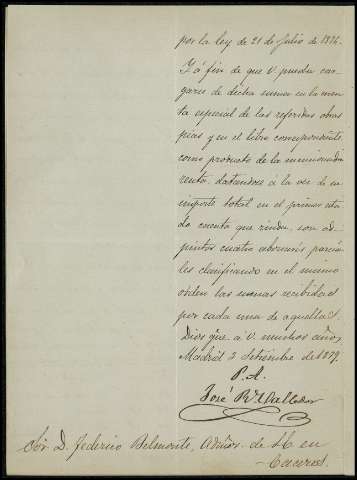 por la ley de 21 de Julio de 1876.
Y á fin de que V. pueda car-
garse de dicha suma en la cuen-
ta especial de las referidas obras
pias y en el libro correspondiente
como producto de la mencionada
renta, datandose á la vez de su
importe total en el primer esta
do cuenta que rinda, son ad-
juntos cuatro abonarés parcia-
les clasificando en el mismo
orden las sumas recibidas
por cada una de aquellas.
Dios gue. á V. muchos años
Madrid 3 Setiembre de 1879.
P. A.
José
Sor. D. Federico Belmonte, Admor. de en
Caceres.